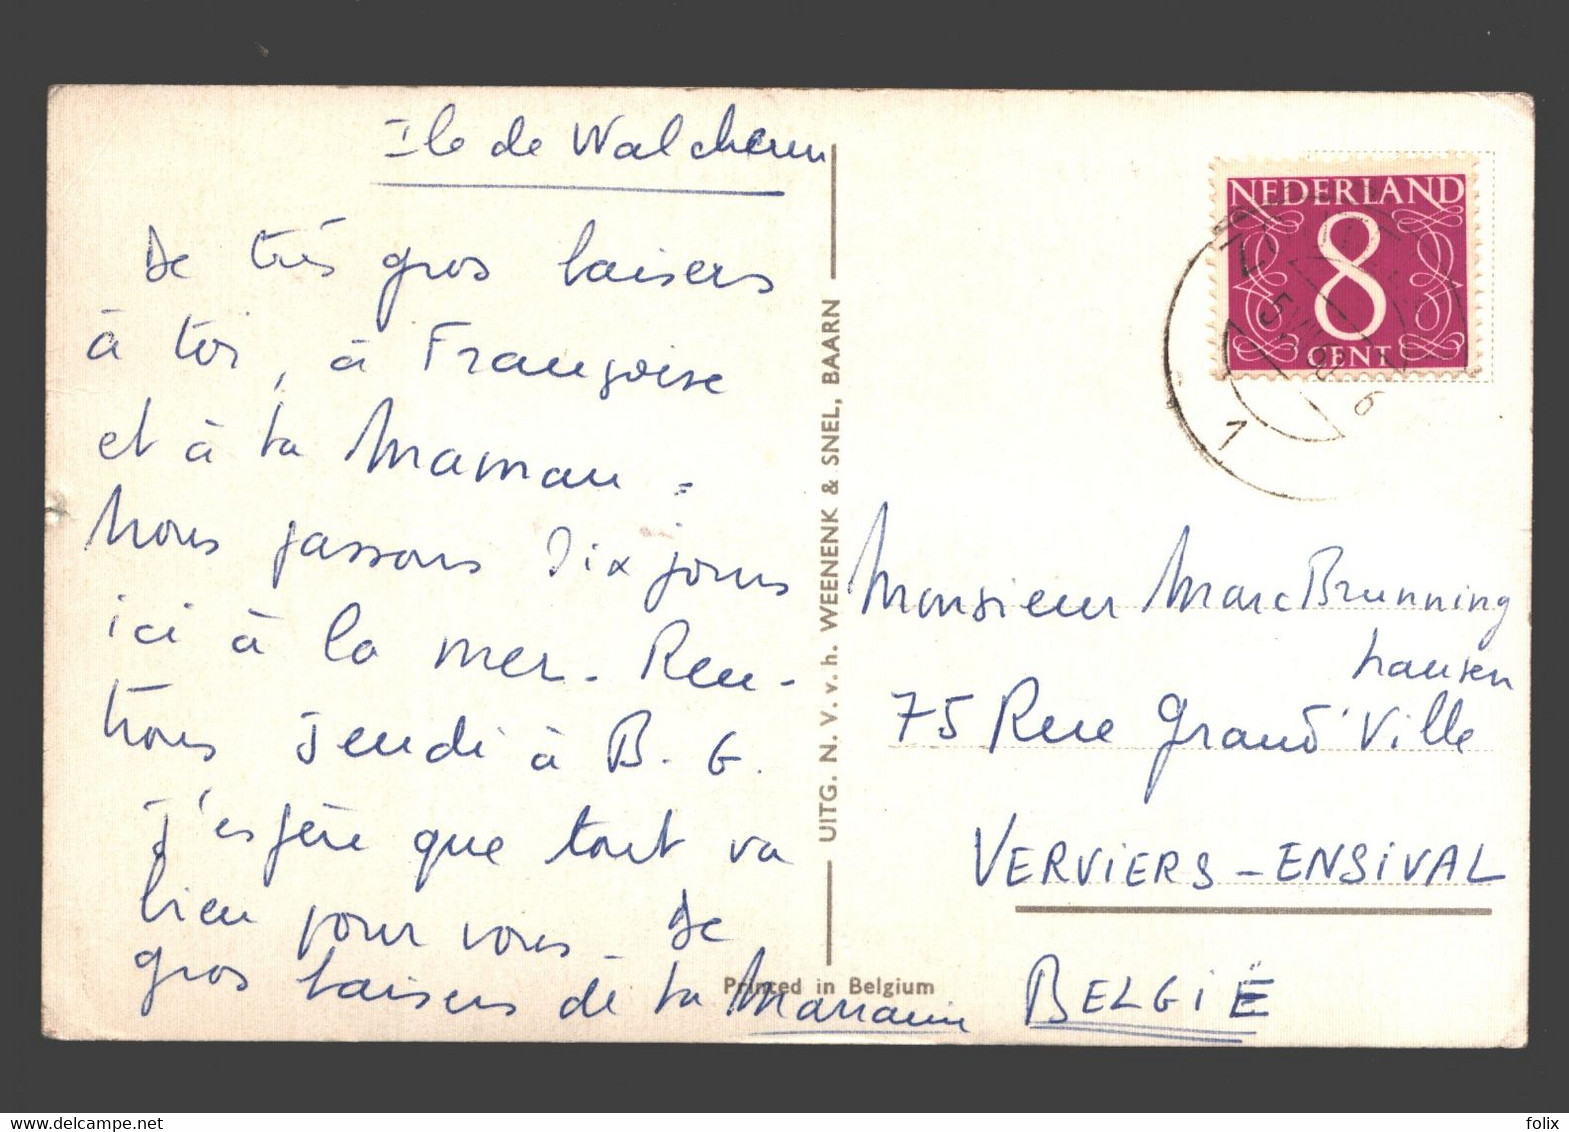 Ile de Walcheren
De très gros baisers
à toi, à Françoise
et à ta Maman.
Nous passons dix jours
ici à la mer. Ren-
trons jeudi à B. G.
J'espère que tout va
bien pour vous. De
gros baisers de ta Marraine
UITG. N. V. v. h. WEENENK & SNEL, BAARN
Printed in Belgium
NEDERLAND
8
CENT
1
6
Monsieur Marc Brunning
hausen
75 Rue Grand'Ville
VERVIERS - ENSIVAL
BELGIË
www.delcampe.net
folix